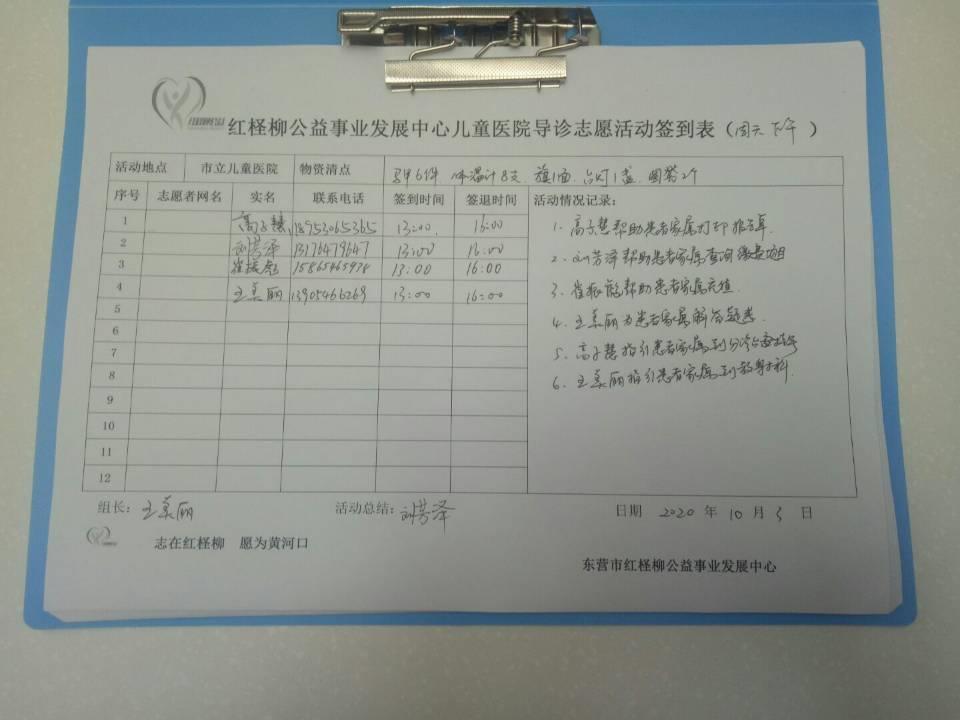 红柽柳公益事业发展中心儿童医院导诊志愿活动签到表（周六下午）
活动地点 市立儿童医院 物资清点 马甲6件 体温计8支 旗1面 台灯1盏
序号 志愿者网名 实名 联系电话 签到时间 签退时间 活动情况记录：
1 高子慧 18953065365 13:00 16:00 1、高子慧帮助患者家属打印报告单
2 刘芳泽 13176479647 13:00 16:00 2、刘芳泽帮助患者家属查询缴费
3 崔振 15865465978 13:00 16:00 3、崔振 帮助患者家属充值
4 王美丽 13905466269 13:00 16:00 4、王美丽为患者家属解答疑惑
5 5、高子慧指引患者家属到分诊台
6 6、王美丽指引患者家属到
7
8
9
10
11
12
组长：王美丽 活动总结：刘芳泽 日期 2020 年 10 月 3 日
志在红柽柳 愿为黄河口
东营市红柽柳公益事业发展中心